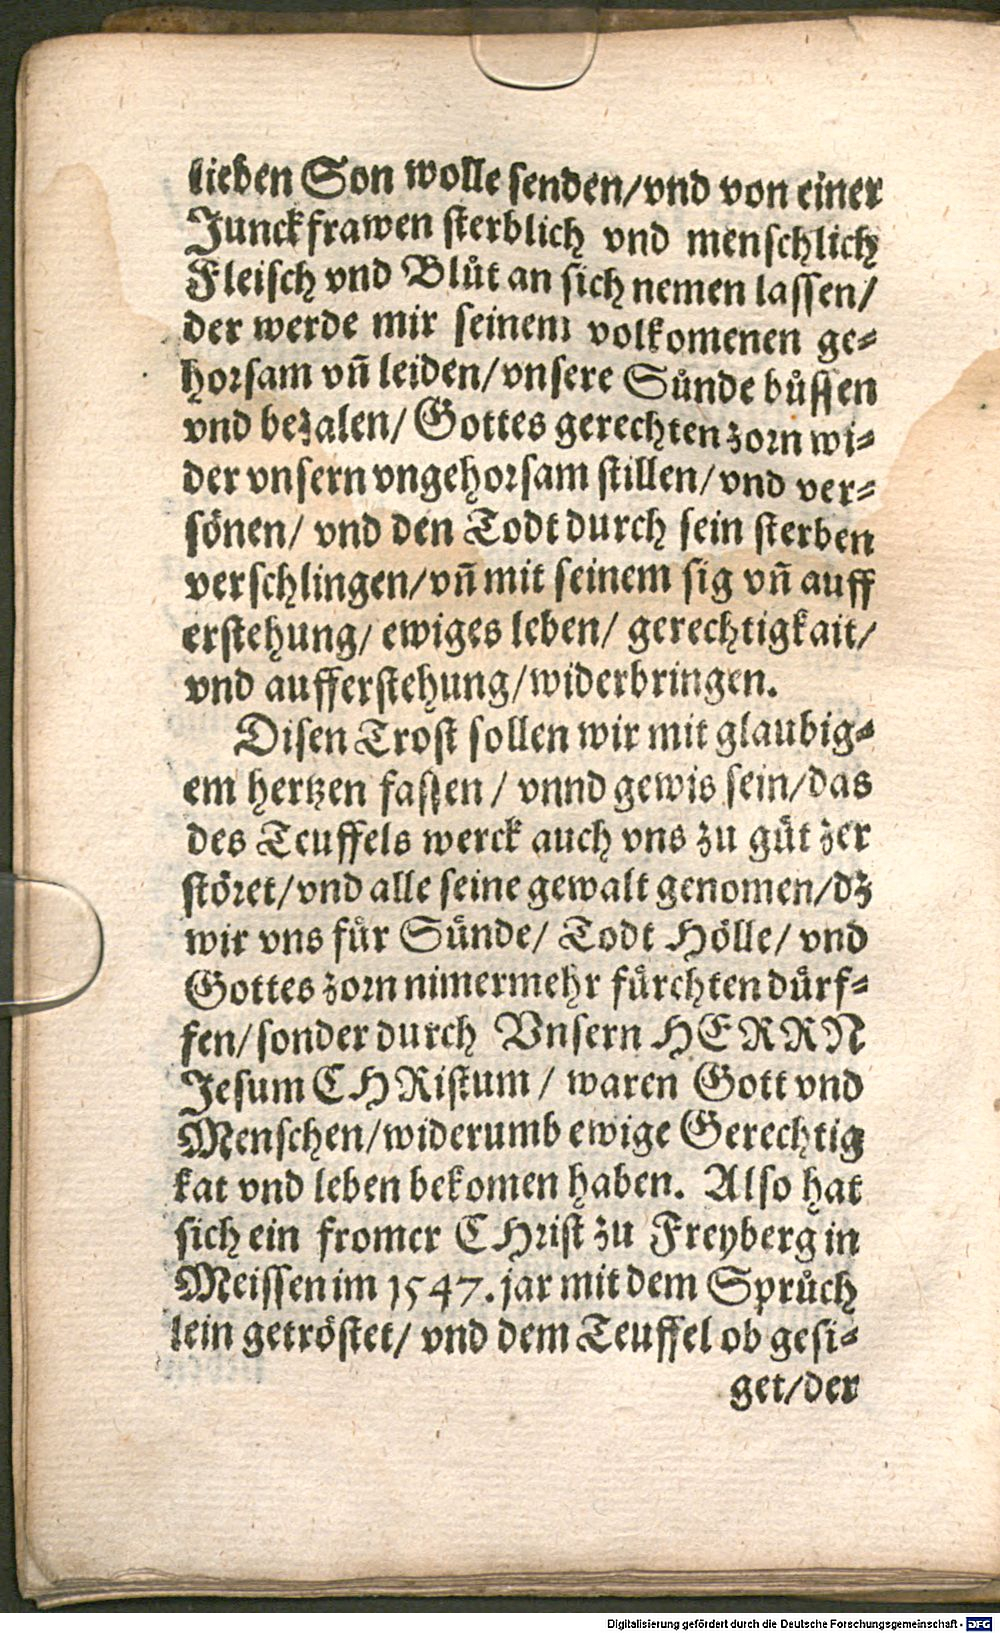 lieben Son wolle senden/vnd von einer
Junckfrawen sterblich vnd menschlich
Fleisch vnd Blůt an sich nemen lassen/
der werde mir seinem volkomenen ge⸗
horsam vñ leiden/vnsere Sünde büssen
vnd bezalen/ Gottes gerechten zorn wi⸗
der vnsern vngehorsam stillen/vnd ver⸗
sönen/ vnd den Todt durch sein sterben
verschlingen/vñ mit seinem sig vñ auff
erstehung/ ewiges leben/ gerechtigkait/
vnd aufferstehung/widerbringen.
Disen Trost sollen wir mit glaubig⸗
em hertzen fassen / vnnd gewis sein/das
des Teuffels werck auch vns zu gůt zer
störet/vnd alle seine gewalt genomen/dz
wir vns für Sünde/ Todt Hölle/ vnd
Gottes zorn nimermehr fürchten dürf⸗
fen/sonder durch Vnsern HERRN
Jesum CHRistum / waren Gott vnd
Menschen/widerumb ewige Gerechtig
kat vnd leben bekomen haben. Also hat
sich ein fromer CHrist zu Freyberg in
Meissen im 1547. jar mit dem Sprüch
lein getröstet/ vnd dem Teuffel ob gesi⸗
get/der
Digitalisierung gefördert durch die Deutsche Forschungsgemeinschaft - DFG